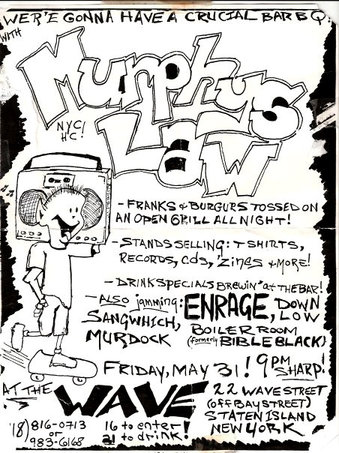 WER'E GONNA HAVE A CRUCIAL BAR B Q:
WITH
Murphys
NYC/
HC!
LAW
- FRANKS & BURGURS TOSSED ON
AN OPEN GRILL ALL NIGHT!
- STANDS SELLING: T SHIRTS,
RECORDS, CDs, 'ZINES & MORE!
- DRINK SPECIALS BREWIN' AT THE BAR!
- ALSO jamming: ENRAGE, DOWN LOW
SANGWHICH, BOILER ROOM
MURDOCK (formerly BIBLE BLACK)
FRIDAY, MAY 31! 9PM SHARP!
AT THE WAVE
22 WAVE STREET
(OFF BAY STREET)
STATEN ISLAND
NEW YORK
'(718) 816-0713
or
983-6168
16 to enter!
21 to drink!